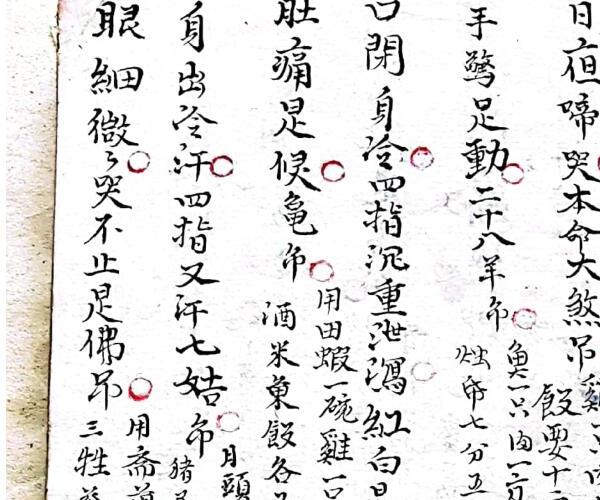 日夜啼哭本命大煞吊雞一只
飯要十
手驚足動二十八羊吊
魚一只肉一
燭帋七分五
口閉身冷四指沉重泄瀉紅白
肚痛是候亀吊
用田蝦一碗雞一只
酒米菓飯各
身出冷汗四指又汗七姑吊
月頭
猪
眼細微々哭不止是佛吊
用斋
三牲